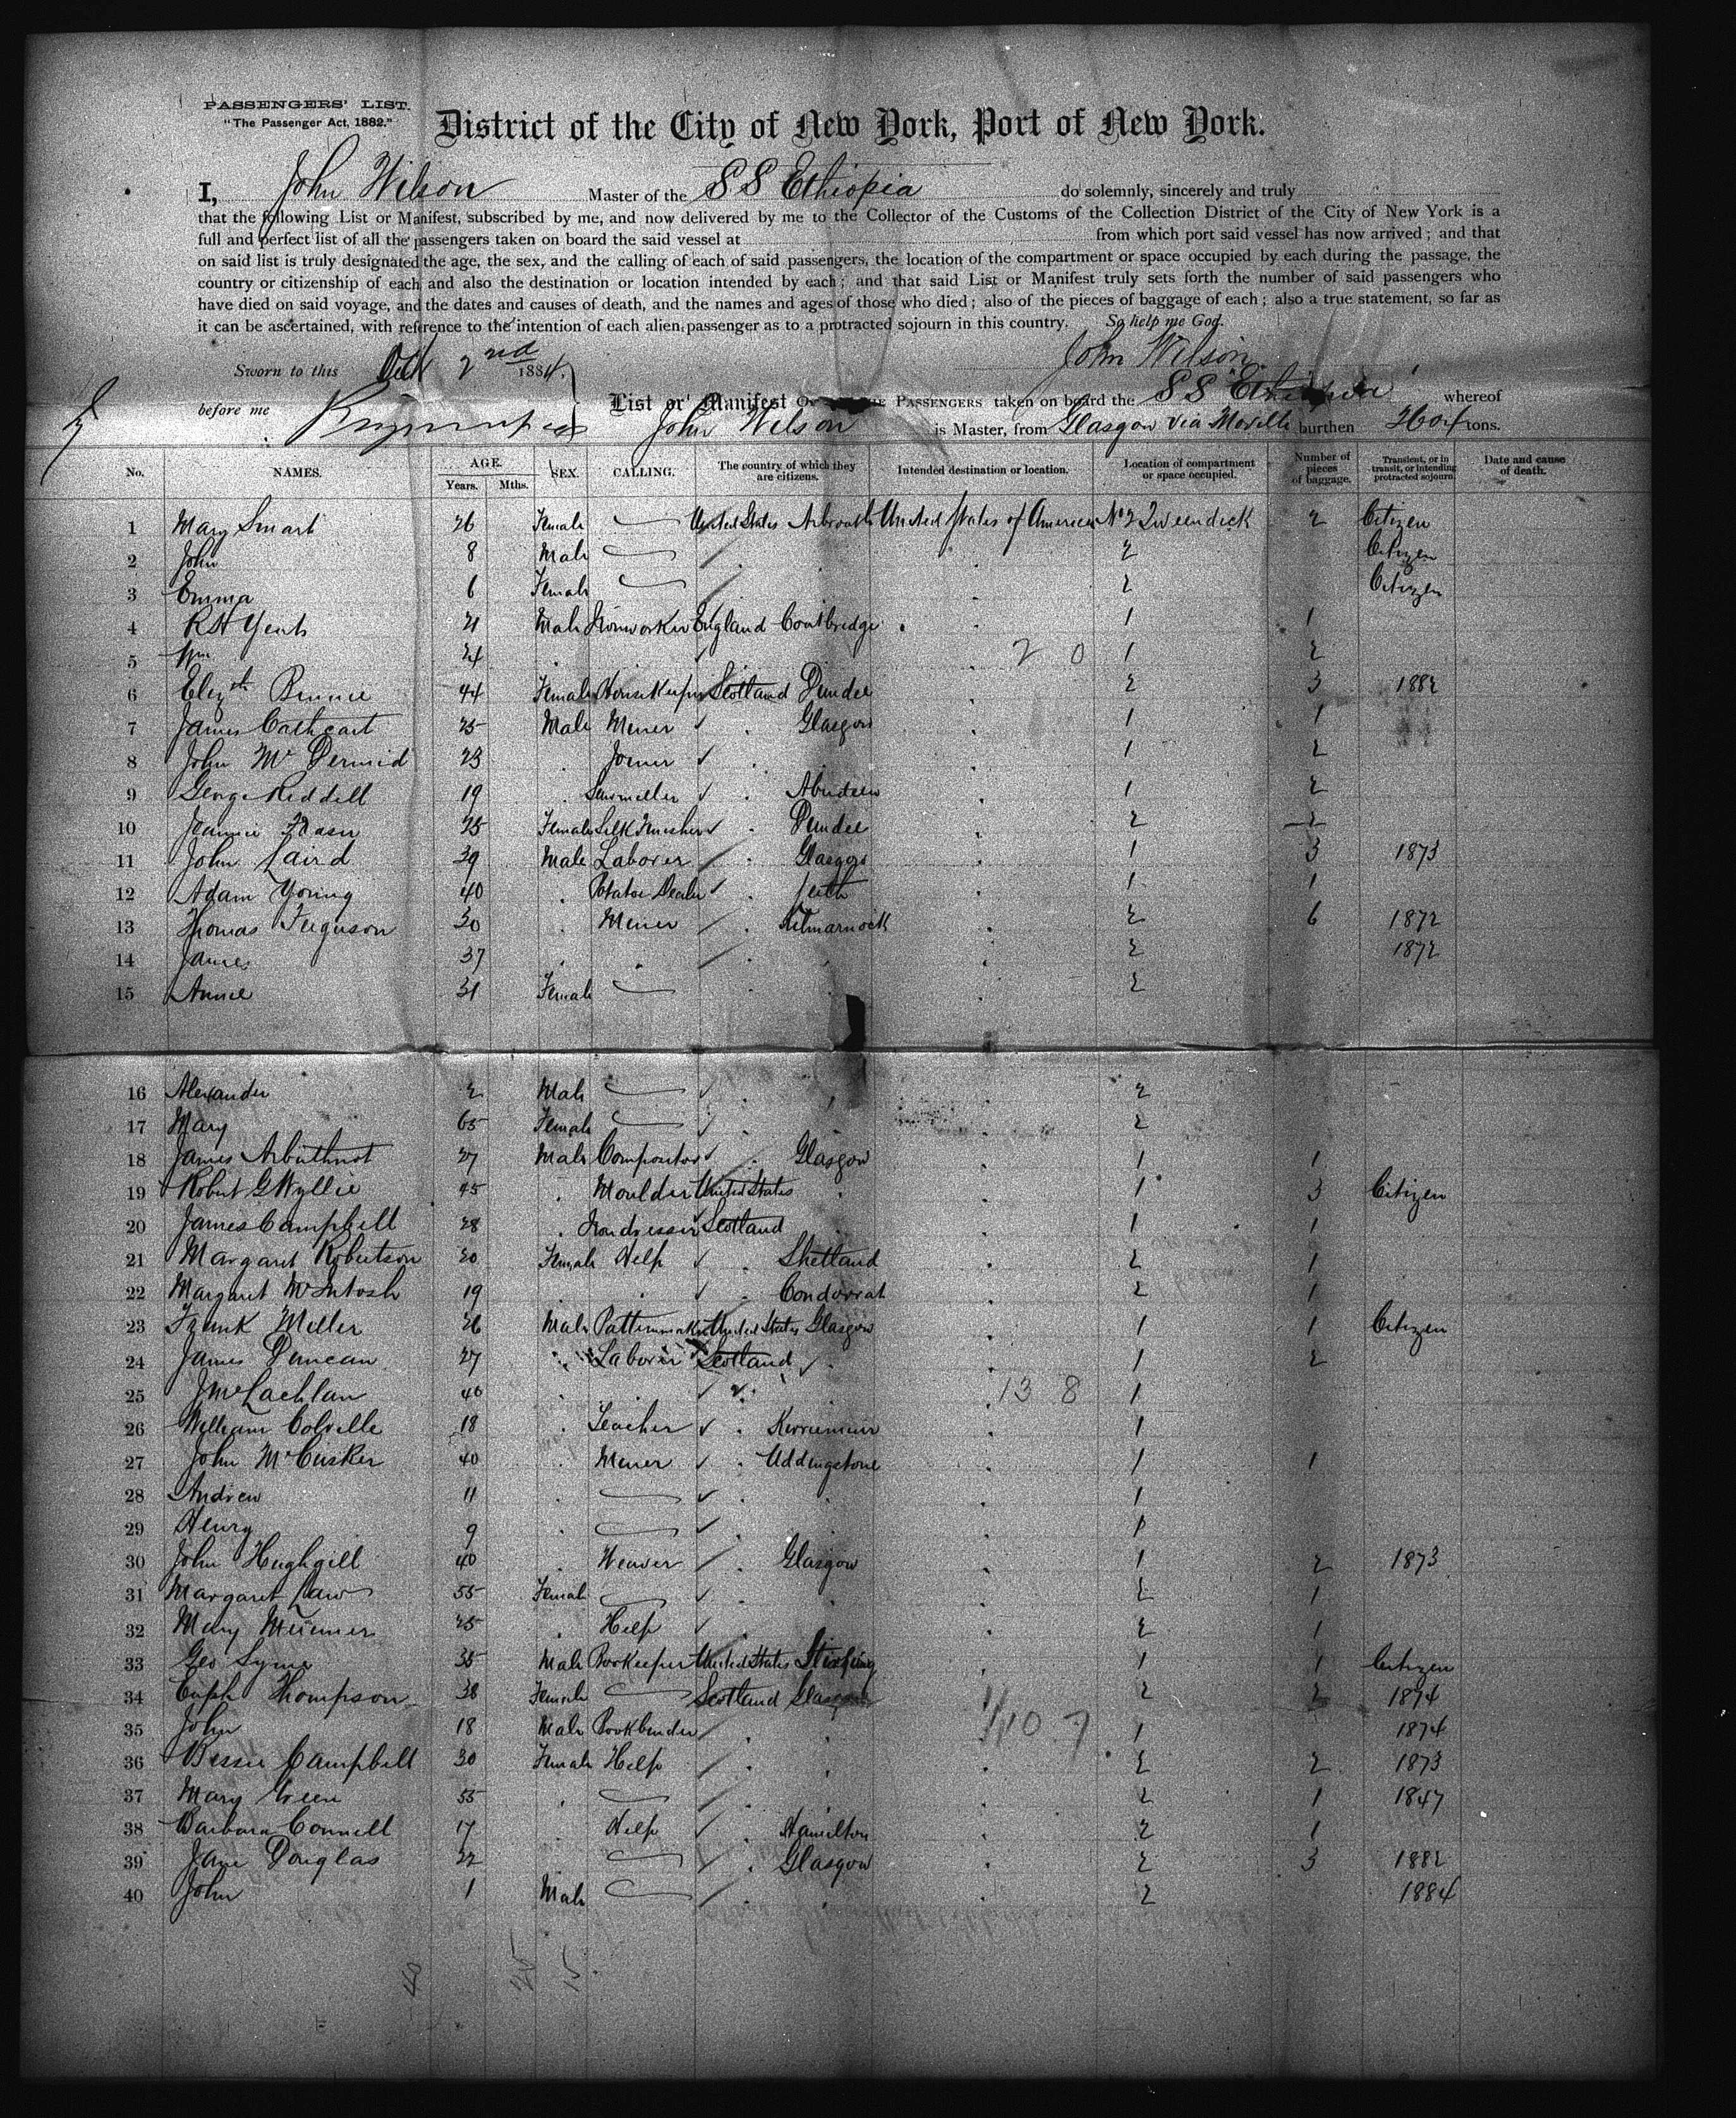 PASSENGERS' LIST.
"The Passenger Act, 1882."
District of the City of New York, Port of New York.
I, John Wilson Master of the SS Ethiopia do solemnly, sincerely and truly
that the following List or Manifest, subscribed by me, and now delivered by me to the Collector of the Customs of the Collection District of the City of New York is a
full and perfect list of all the passengers taken on board the said vessel at from which port said vessel has now arrived; and that
on said list is truly designated the age, the sex, and the calling of each of said passengers, the location of the compartment or space occupied by each during the passage, the
country or citizenship of each and also the destination or location intended by each; and that said List or Manifest truly sets forth the number of said passengers who
have died on said voyage, and the dates and causes of death, and the names and ages of those who died; also of the pieces of baggage of each; also a true statement, so far as
it can be ascertained, with reference to the intention of each alien passenger as to a protracted sojourn in this country. So help me God.
John Wilson
Sworn to this Oct 2nd 1884.
before me
List or Manifest PASSENGERS taken on board the SS Ethiopia whereof
John Wilson is Master, from Glasgow via Moville burthen 2604 tons.
No. NAMES. AGE. Years. Mths. SEX. CALLING. The country of which they are citizens. Intended destination or location. Location of compartment or space occupied. Number of pieces of baggage. Transient, or in transit, or intending protracted sojourn. Date and cause of death.
1 Mary Smart 26 Female United States Arbroath United States of America No 2 Tweendeck 2 Citizen
2 John 8 Male 2 Citizen
3 Emma 6 Female 2 Citizen
4 R H Yeats 21 Male Ironworker England Coatbridge 1 1
5 Wm 24 2 0 1 2
6 Elizth Binnie 44 Female Housekeeper Scotland Dundee 2 3 1882
7 James Cathcart 25 Male Miner Glasgow 1 1
8 John McDermid 23 Joiner 1 2
9 George Riddell 19 Sawmiller Aberdeen 1 2
10 Jeannie Fraser 25 Female Silk Finisher Dundee 2 2
11 John Laird 39 Male Laborer Glasgow 1 3 1873
12 Adam Young 40 Potatoe Dealer 1 1
13 Thomas Ferguson 30 Miner Kilmarnock 2 6 1872
14 James 37 2 1872
15 Annie 31 Female 2
16 Alexander 2 Male 2
17 Mary 65 Female 2
18 James Arbuthnot 27 Male Compositor Glasgow 1 1
19 Robert G Wyllie 45 Moulder United States 1 3 Citizen
20 James Campbell 28 Irondresser Scotland 1 1
21 Margaret Robertson 20 Female Help Shetland 2 1
22 Margaret McIntosh 19 Condorrat 2 1
23 Frank Miller 26 Male Patternmaker United States Glasgow 1 1 Citizen
24 James Duncan 27 Laborer Scotland 1 2
25 J McLachlan 40 13 8 1
26 William Colville 18 Teacher Kerriemuir 1
27 John McCusker 40 Miner Uddingstone 1 1
28 Andrew 11 1
29 Henry 9 1
30 John Hughgill 40 Weaver Glasgow 1 2 1873
31 Margaret Law 55 Female 2 1
32 Mary 25 Help 2 1
33 Geo Syme 35 Male Bookeeper United States Stirling 1 1 Citizen
34 Euph Thompson 38 Female Scotland Glasgow 2 2 1874
35 John 18 Male Bookbinder 10 7 1 1874
36 Bessie Campbell 30 Female Help 2 2 1873
37 Mary Green 55 2 1 1847
38 Barbara Connell 17 Help Hamilton 2 1
39 Jane Douglas 22 Glasgow 2 3 1882
40 John 1 Male 2 1884
40 25 15